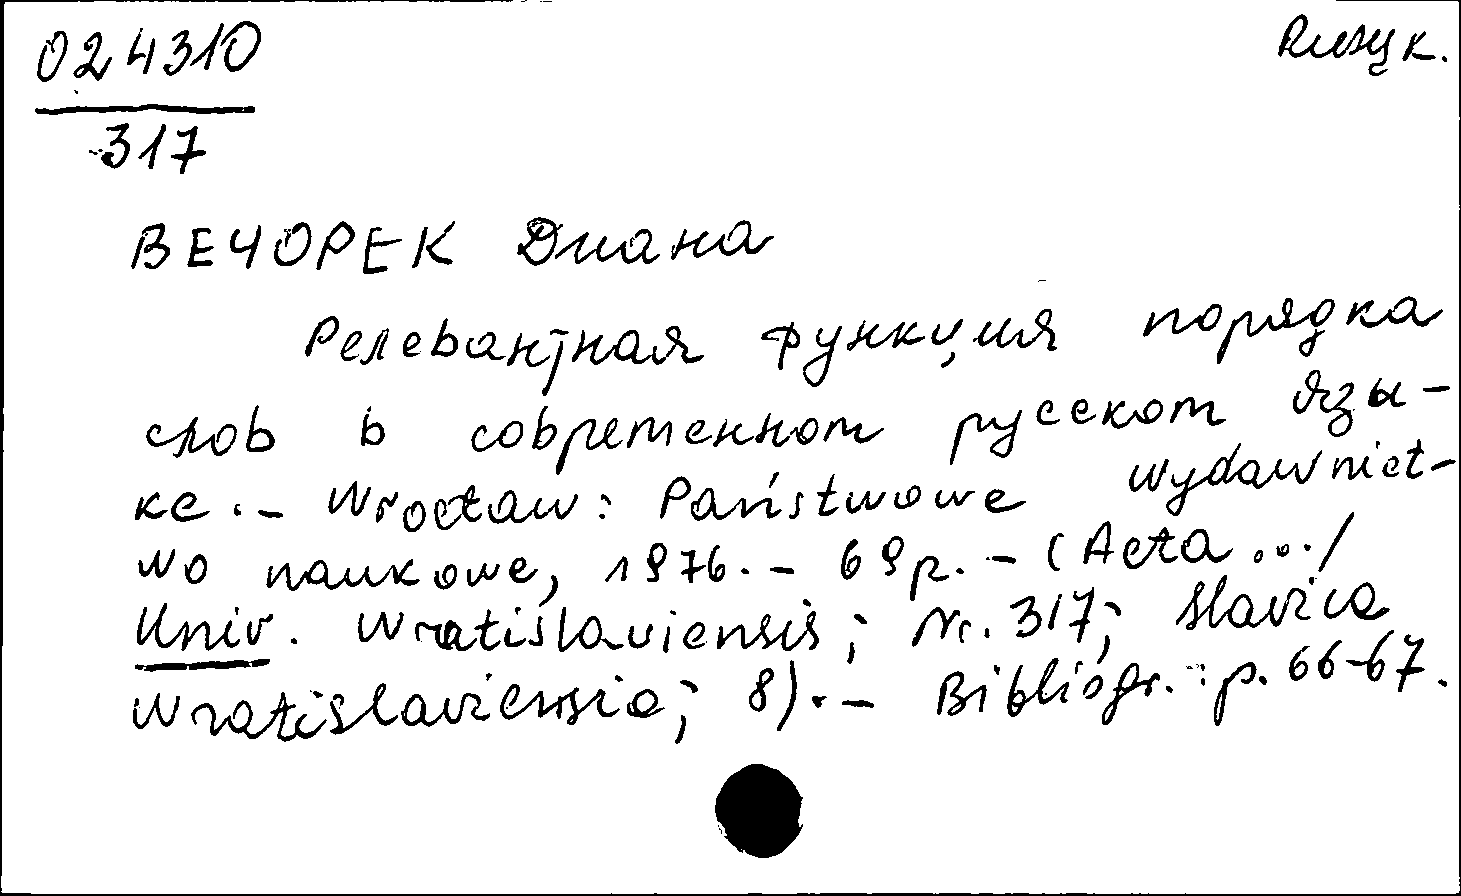 024310
317
ВЕЧОРЕК Диана
Релевантная функция порядка
слов в современном русском язы-
ке. - Wrocław: Państwowe wydawnict-
wo naukowe, 1976. - 69 p. - (Acta .../
Univ. Wratislaviensis; Nr. 317; Slavica
Wratislaviensia; 8). - Bibliogr.: p. 66-67.